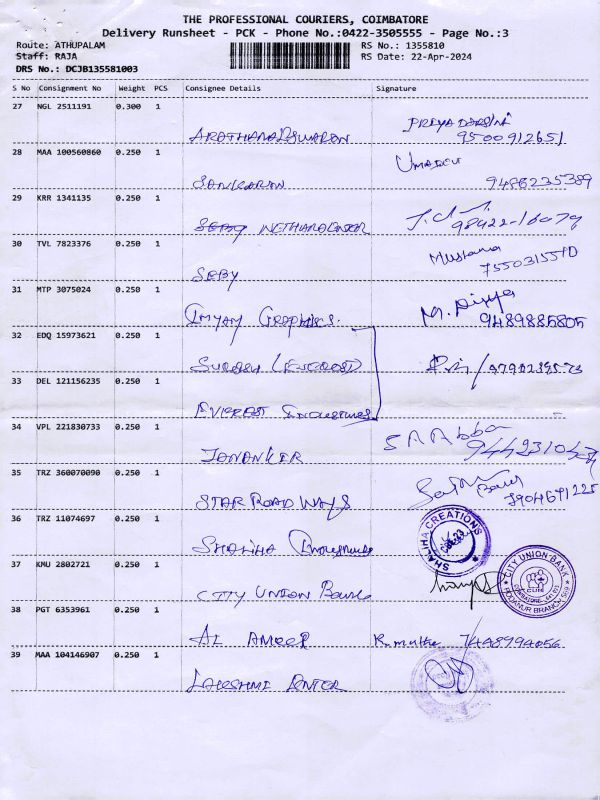 THE PROFESSIONAL COURIERS, COIMBATORE
Delivery Runsheet - PCK - Phone No.:0422-3505555 - Page No.:3
Route: ATHUPALAM
RS No.: 1355810
Staff: RAJA
RS Date: 22-Apr-2024
DRS No.: DCJB135581003
S No Consignment No Weight PCS Consignee Details Signature
27 NGL 2511191 0.300 1
9500912651
28 MAA 100560860 0.250 1
SANKARAN 9486235389
29 KRR 1341135 0.250 1
SEBY 98422-16079
30 TVL 7823376 0.250 1 Mustana
SEBY
31 MTP 3075024 0.250 1
IMYAM GRAPHICS. 9489885805
32 EDQ 15973621 0.250 1
33 DEL 121156235 0.250 1
EVEREST INDUSTRIES
34 VPL 221830733 0.250 1 S A Abba
35 TRZ 360070090 0.250 1
STAR ROAD WAYS
36 TRZ 11074697 0.250 1
SHALIHA
SHALIHA CREATIONS
37 KMU 2802721 0.250 1
CITY UNION BANK
CITY UNION BANK
CUB
38 PGT 6353961 0.250 1
AL AMEER R. muthu 7448994056
39 MAA 104146907 0.250 1
LAKSHMI